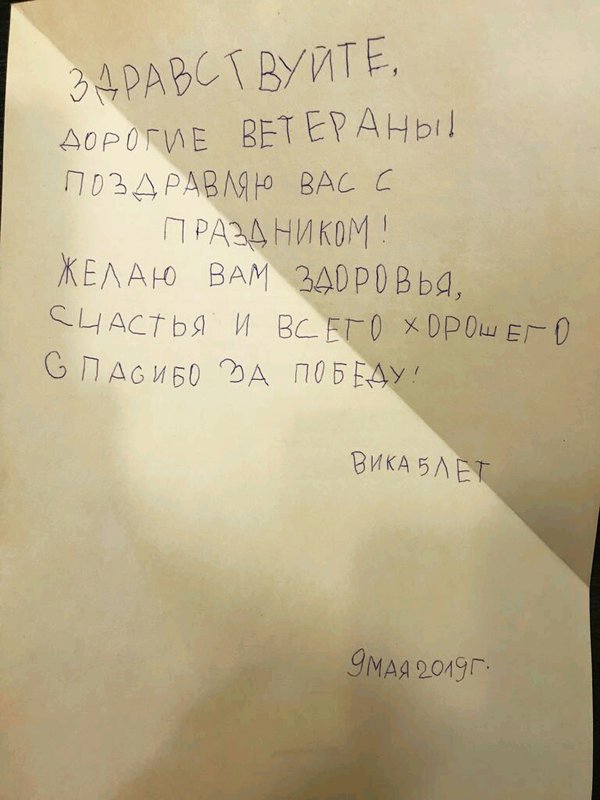 ЗДРАВСТВУЙТЕ,
ДОРОГИЕ ВЕТЕРАНЫ!
ПОЗДРАВЛЯЮ ВАС С
ПРАЗДНИКОМ!
ЖЕЛАЮ ВАМ ЗДОРОВЬЯ,
СЧАСТЬЯ И ВСЕГО ХОРОШЕГО
СПАСИБО ЗА ПОБЕДУ!
ВИКА 5 ЛЕТ
9 МАЯ 2019 Г.